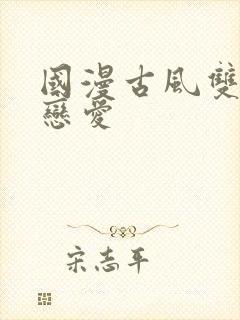 國漫古風雙
戀愛
宋志平